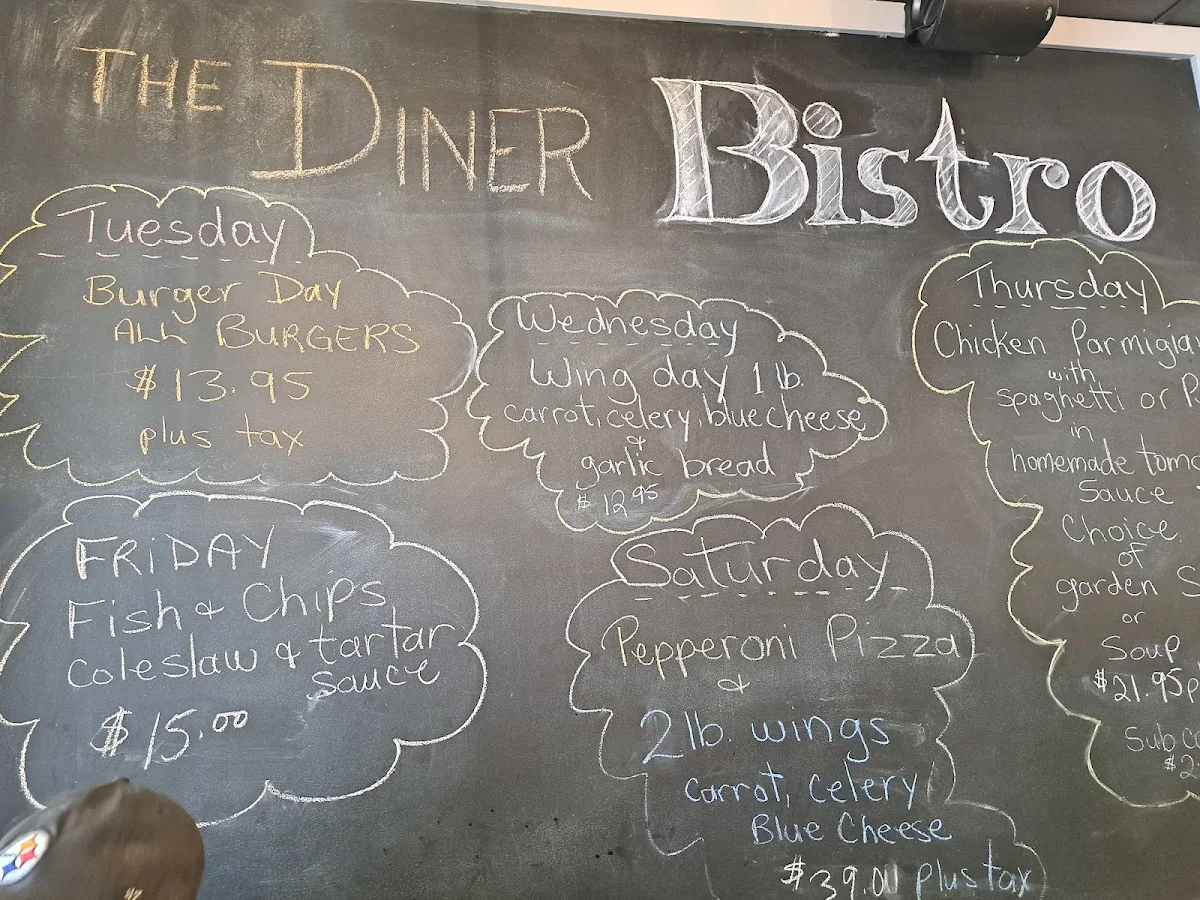 THE DINER Bistro
Tuesday
Burger Day
ALL BURGERS
$13.95
plus tax
Wednesday
Wing day 1 lb.
carrot, celery, blue cheese
&
garlic bread
$12.95
Thursday
Chicken
with
spaghetti or
in
homemade
Sauce
Choice
of
garden
or
Soup
$21.95
Sub
FRIDAY
Fish & Chips
coleslaw & tartar
sauce
$15.00
Saturday
Pepperoni Pizza
&
2 lb. wings
carrot, celery
Blue Cheese
$39.00 plus tax